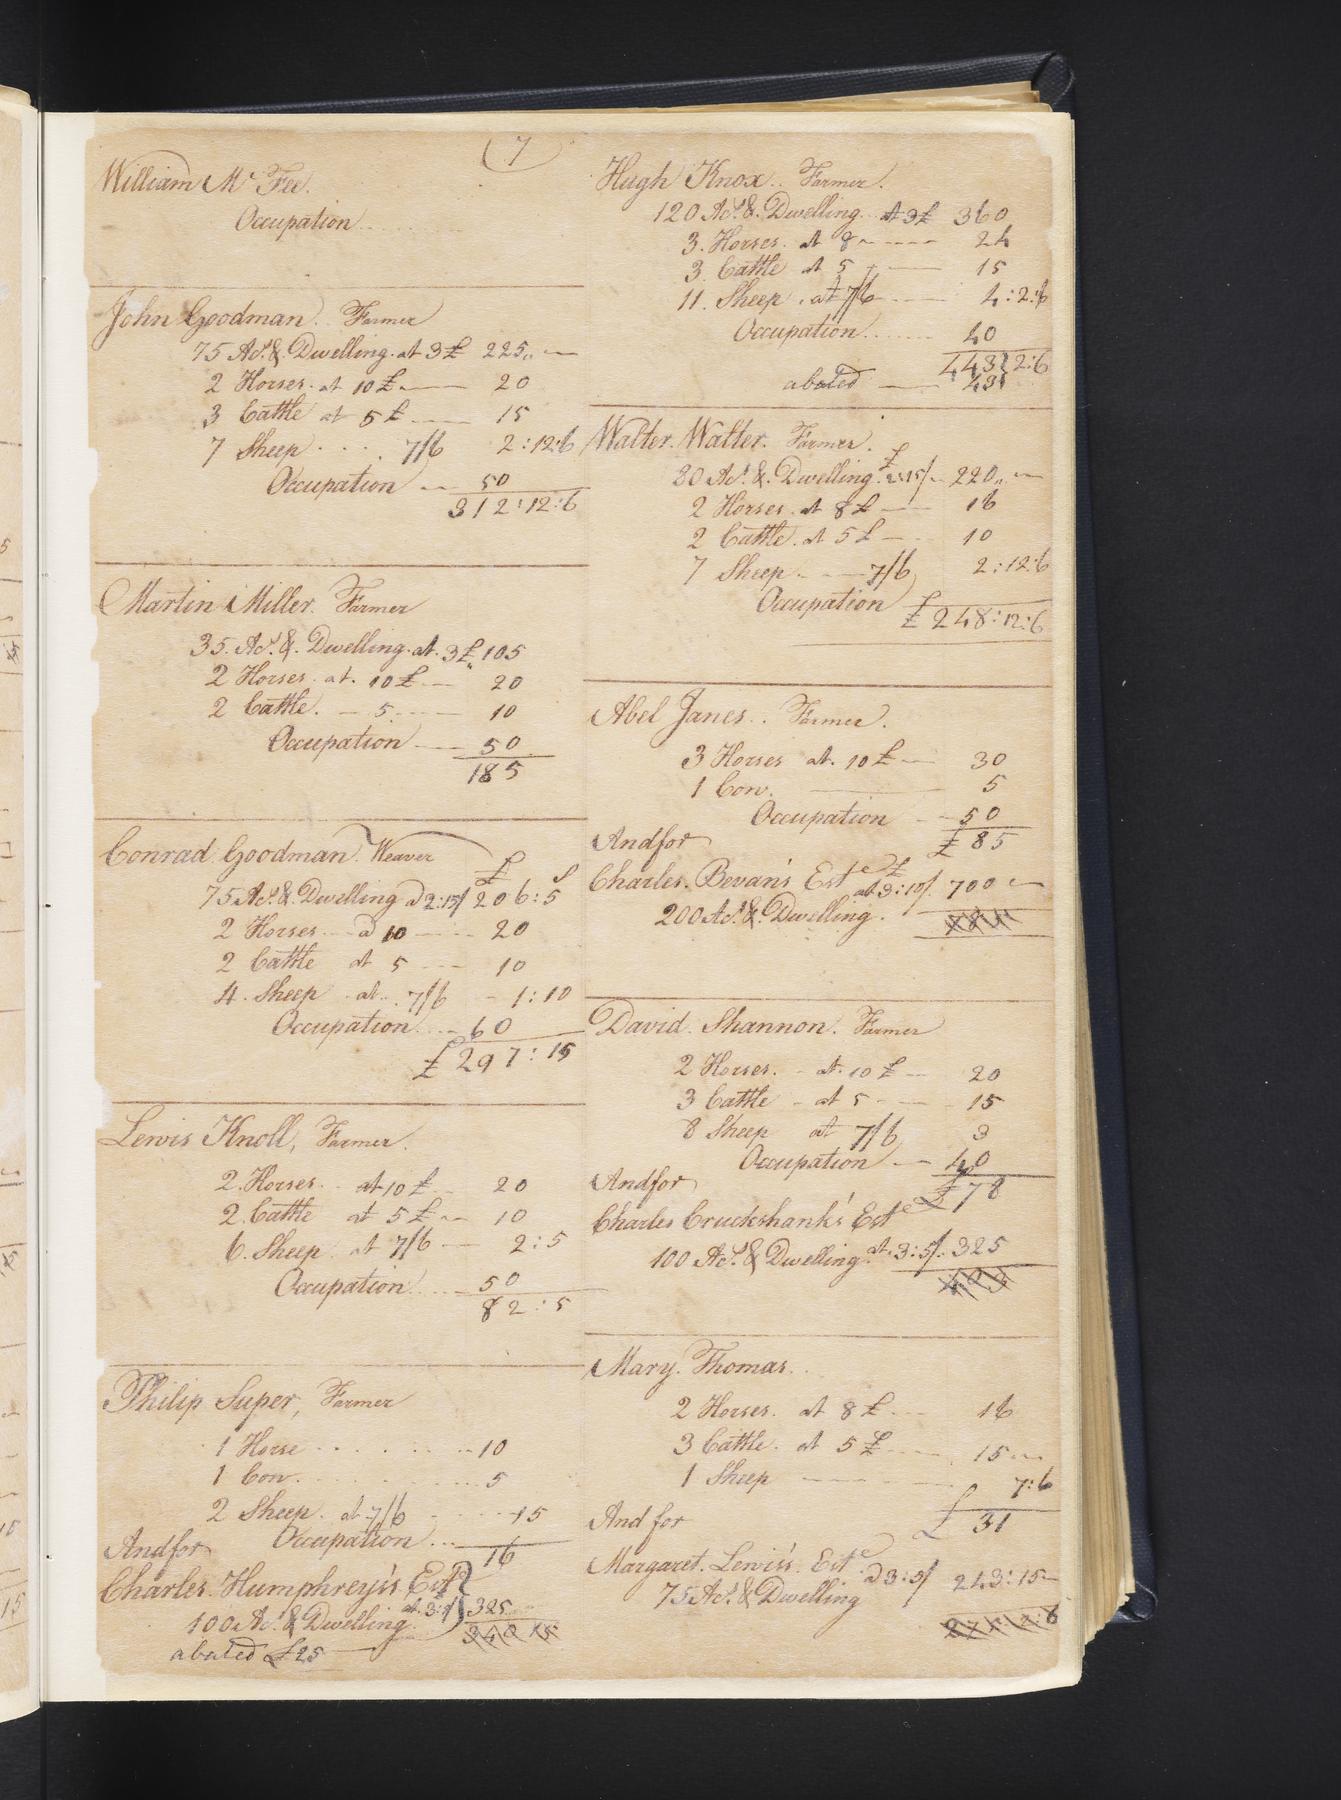 7
William Mc Fee.
Occupation
John Goodman. Farmer
75 Acs. & Dwelling. at 3£ 225
2 Horses. at 10£ 20
3 Cattle at 5£ 15
7 Sheep 7/6 2:12:6
Occupation 50
312:12:6
Martin Miller. Farmer
35. Acs. & Dwelling. at. 3£ 105
2 Horses. at. 10£ 20
2 Cattle. 5. 10
Occupation 50
185
Conrad Goodman. Weaver
£ S
75 Acs. & Dwelling a 2:15/ 206:5
2 Horses a 10 20
2 Cattle at 5 10
4. Sheep at 7/6 1:10
Occupation 60
£297:15
Lewis Knoll, Farmer.
2. Horses. at 10£ 20
2. Cattle at 5£ 10
6. Sheep at 7/6 2:5
Occupation 50
82:5
Philip Super, Farmer
1 Horse 10
1 Cow. 5
2 Sheep. at 7/6 15
And for Occupation
16
Charles. Humphreys's Este
100 Acs. & Dwelling. at 3:5/ 325
340 15
abated £25
Hugh Knox.. Farmer.
120 Acs. & Dwelling. at 3£ 360
3. Horses. at 8 24
3. Cattle at 5 15
11. Sheep. at 7/6 4:2:6
Occupation 40
443 2:6
abated 43
Walter. Walter. Farmer.
£
80 Acs. & Dwelling. 2:15/ 220
2 Horses. at 8£ 16
2 Cattle. at 5£ 10
7 Sheep. 7/6 2:12:6
Occupation
£248:12:6
Abel Janes.. Farmer.
3 Horses at. 10£ 30
1 Cow. 5
Occupation 50
And for £85
Charles. Bevan's Este £
at 3:10/. 700
200 Acs. & Dwelling.
David. Shannon. Farmer
2 Horses. at. 10£ 20
3 Cattle at 5 15
8 Sheep at 7/6 3
Occupation 40
And for £78
Charles Cruckshank's Este
100 Acs. & Dwelling. at. 3:5/. 325
403
Mary. Thomas..
2 Horses. at 8£ 16
3 Cattle. at 5£ 15
1 Sheep 7:6
And for £ 31
Margaret. Lewis's. Este
75 Acs. & Dwelling a 3:5/ 243:15